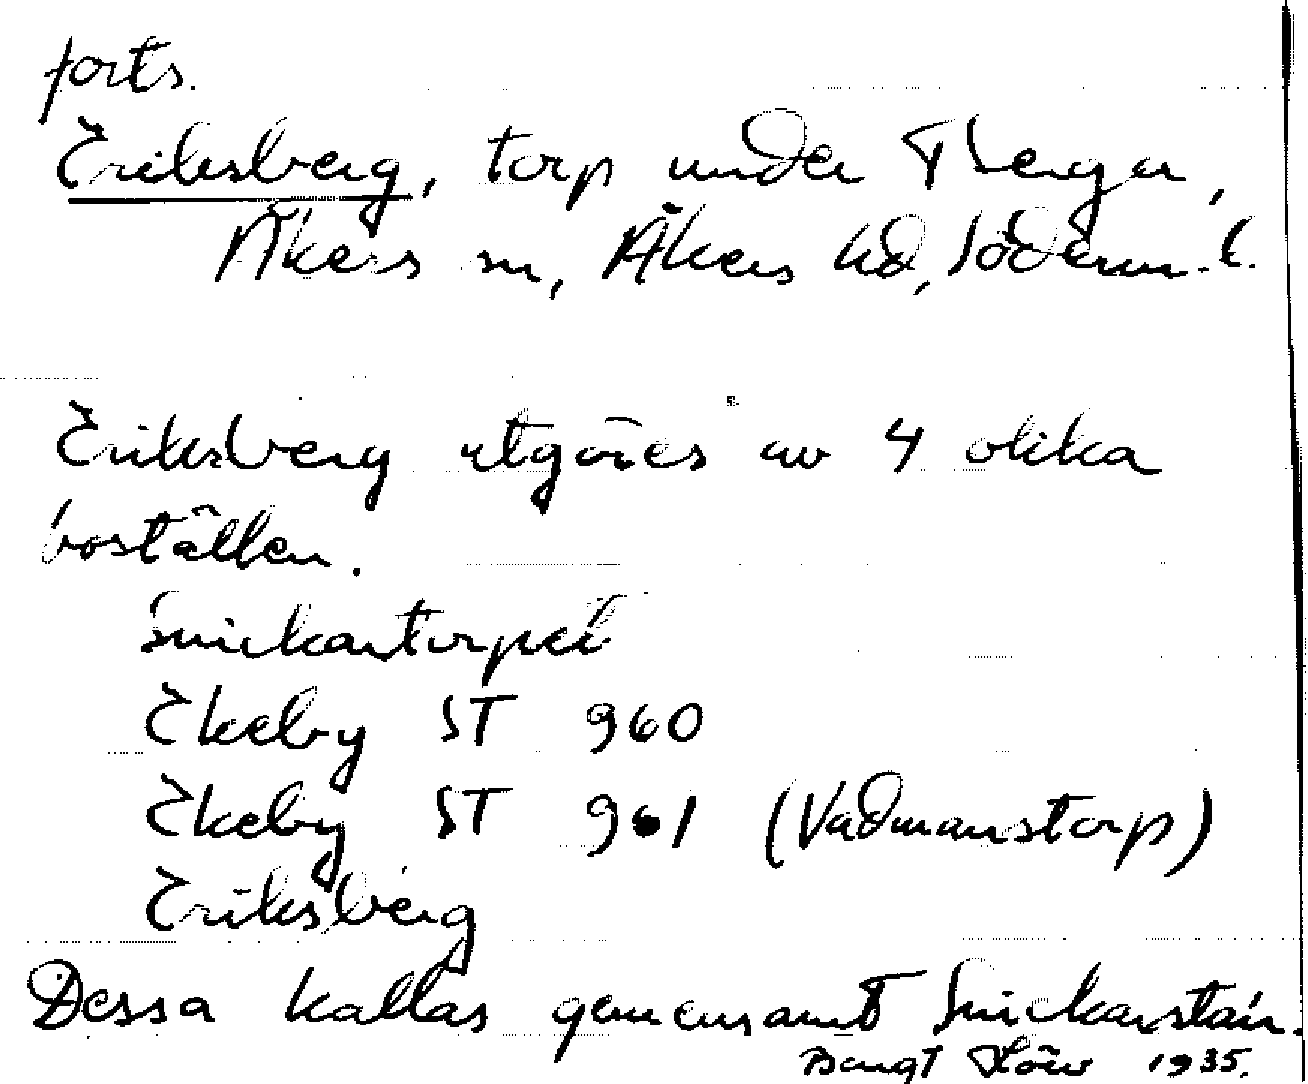 forts.
Eriksberg, torp under Berga,
Åkers sn, Åkers hd, Söderm. l.
Eriksberg utgöres av 4 olika
boställen.
Snickartorpet
Ekeby ST 960
Ekeby ST 961 (Vadmanstorp)
Eriksberg
Dessa kallas gemensamt
Bengt 1935.